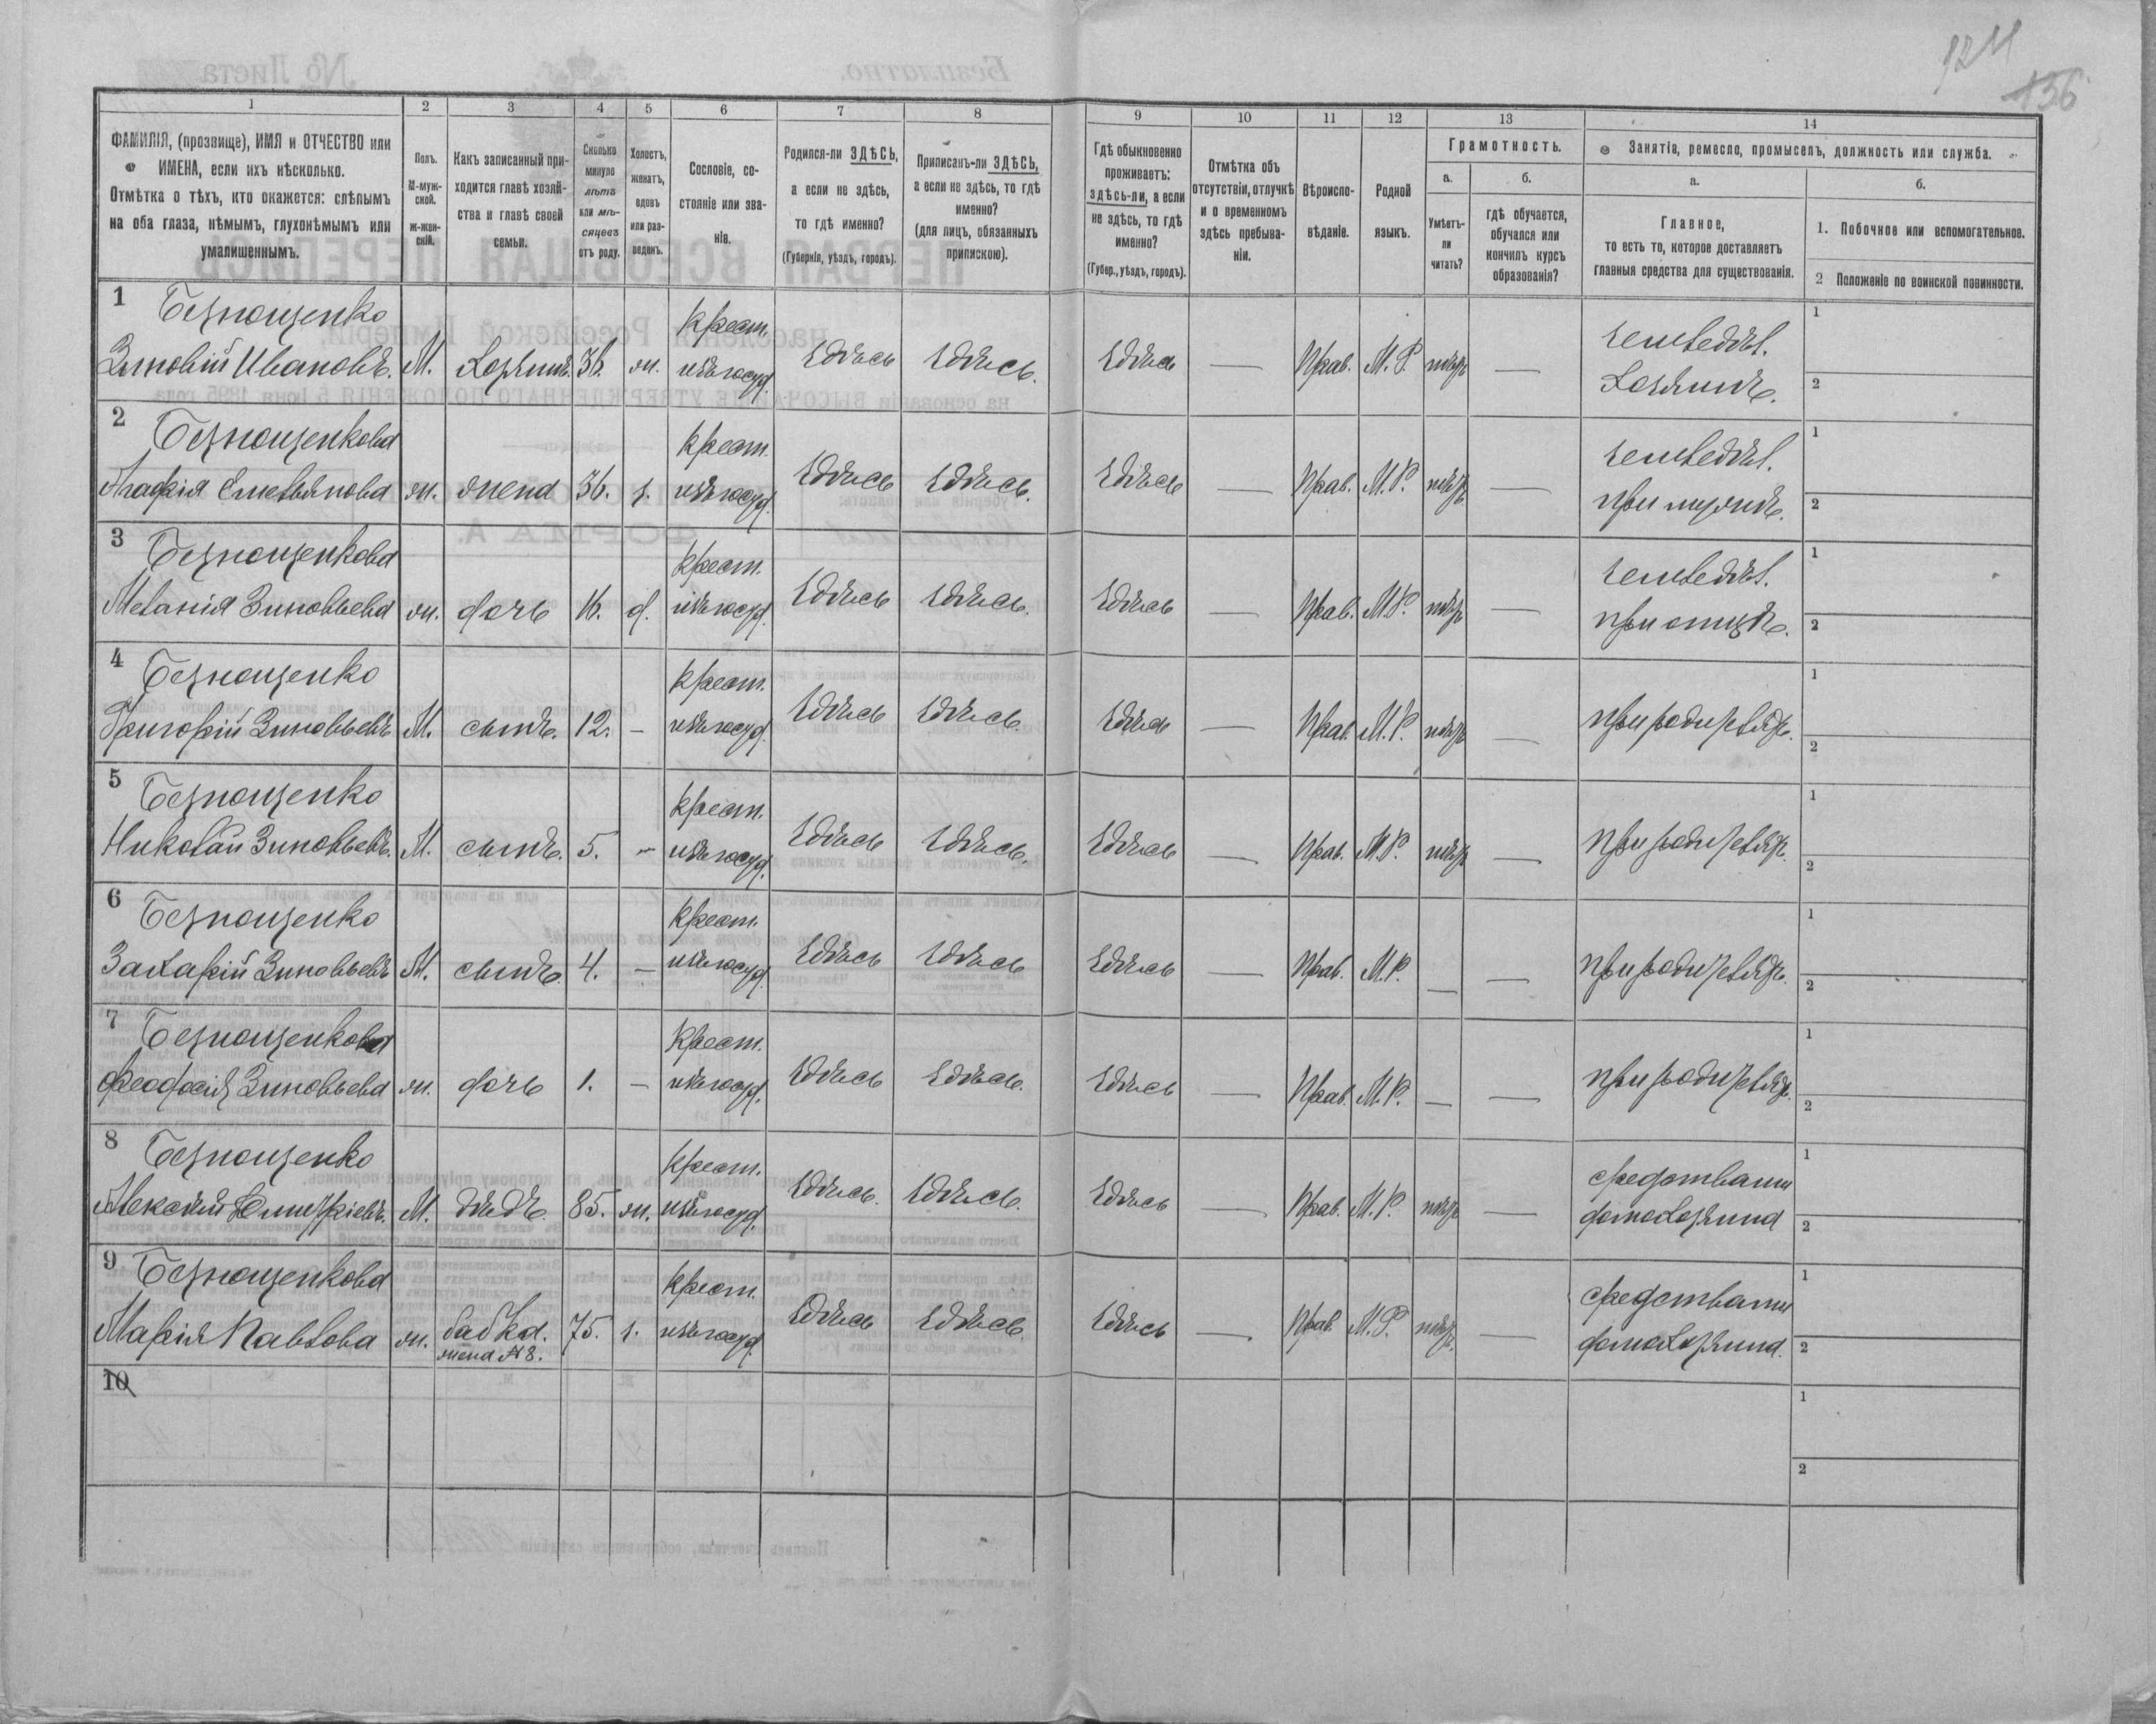 124
136
1 2 3 4 5 6 7 8 9 10 11 12 13 14
ФАМИЛІЯ, (прозвище), ИМЯ и ОТЧЕСТВО или
ИМЕНА, если ихъ нѣсколько.
Отмѣтка о тѣхъ, кто окажется: слѣпымъ
на оба глаза, нѣмымъ, глухонѣмымъ или
умалишеннымъ.
Полъ.
М-муж-
ской.
Ж-жен-
скій.
Какъ записанный при-
ходится главѣ хозяй-
ства и главѣ своей
семьи.
Сколько
минуло
лѣтъ
или мѣ-
сяцевъ
отъ роду.
Холостъ,
женатъ,
вдовъ
или раз-
веденъ.
Сословіе, со-
стояніе или зва-
ніе.
Родился-ли ЗДѢСЬ,
а если не здѣсь,
то гдѣ именно?
(Губернія, уѣздъ, городъ).
Приписанъ-ли ЗДѢСЬ,
а если не здѣсь, то гдѣ
именно?
(для лицъ, обязанныхъ
припискою).
Гдѣ обыкновенно
проживаетъ:
здѣсь-ли, а если
не здѣсь, то гдѣ
именно?
(Губер., уѣздъ, городъ).
Отмѣтка объ
отсутствіи, отлучкѣ
и о временномъ
здѣсь пребыва-
ніи.
Вѣроиспо-
вѣданіе.
Родной
языкъ.
Грамотность.
а.
Умѣетъ-
ли
читать?
б.
гдѣ обучается,
обучался или
кончилъ курсъ
образованія?
Занятія, ремесло, промыселъ, должность или служба.
а.
Главное,
то есть то, которое доставляетъ
главныя средства для существованія.
б.
1. Побочное или вспомогательное.
2 Положеніе по воинской повинности.
1 Безнощенко крест. земледѣл. 1
Зиновій Ивановъ. М. хозяинъ. 36. ж. изъ госуд. здѣсь здѣсь. здѣсь — Прав. М.Р. нѣтъ — хозяинъ. 2
2 Безнощенкова крест. земледѣл. 1
Агафія Емельянова ж. жена 36. з. изъ госуд. здѣсь здѣсь. здѣсь — Прав. М.Р. нѣтъ — при мужѣ. 2
3 Безнощенкова крест. земледѣл. 1
Меланія Зиновьева ж. дочь 16. д. изъ госуд. здѣсь здѣсь. здѣсь — Прав. М.Р. нѣтъ — при отцѣ. 2
4 Безнощенко крест. 1
Григорій Зиновьевъ М. сынъ. 12. — изъ госуд. здѣсь здѣсь. здѣсь — Прав. М.Р. нѣтъ — при родителяхъ. 2
5 Безнощенко крест. 1
Николай Зиновьевъ. М. сынъ. 5. — изъ госуд. здѣсь здѣсь. здѣсь — Прав. М.Р. нѣтъ — при родителяхъ. 2
6 Безнощенко крест. 1
Захарій Зиновьевъ М. сынъ. 4. — изъ госуд. здѣсь здѣсь здѣсь — Прав. М.Р. — — при родителяхъ. 2
7 Безнощенкова крест. 1
Зиновьева ж. дочь 1. — изъ госуд. здѣсь здѣсь. здѣсь — Прав. М.Р. — — при родителяхъ. 2
8 Безнощенко крест. средствами 1
Алексѣй Дмитріевъ. М. дѣдъ. 85. ж. изъ госуд. здѣсь. здѣсь. здѣсь — Прав. М.Р. нѣтъ — домохозяина 2
9 Безнощенкова крест. средствами 1
Марія Павлова ж. бабка. 75. з. изъ госуд. здѣсь здѣсь. здѣсь — Прав. М.Р. нѣтъ — домохозяина. 2
жена № 8.
10 1
2